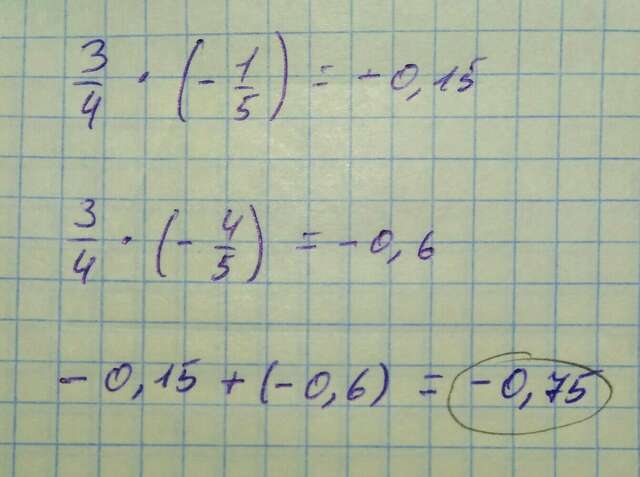 3/4 · (-1/5) = -0,15
3/4 · (-4/5) = -0,6
-0,15 + (-0,6) = -0,75